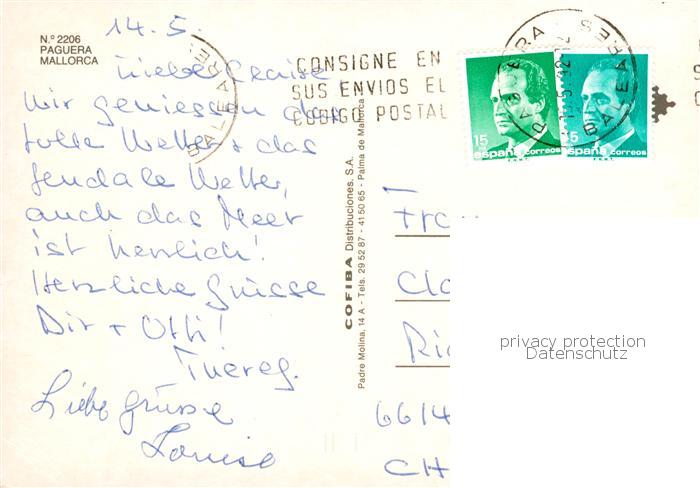 14.5.
N.º 2206
PAGUERA
MALLORCA
Wir geniessen das
tolle Wetter + das
feudale Wetter,
auch das Meer
ist herrlich!
Herzliche Grüsse
Dir + Otti!
Liebe grüsse
Louise
COFIBA Distribuciones, S.A.
Padre Molina, 14 A - Tels. 29 52 87 - 41 50 65 - Palma de Mallorca
CONSIGNE EN
SUS ENVIOS EL
CODIGO POSTAL
BALEARES
15
españa correos
españa correos
BALEARES
Fr
Cla
Ri
6614
CH
privacy protection
Datenschutz